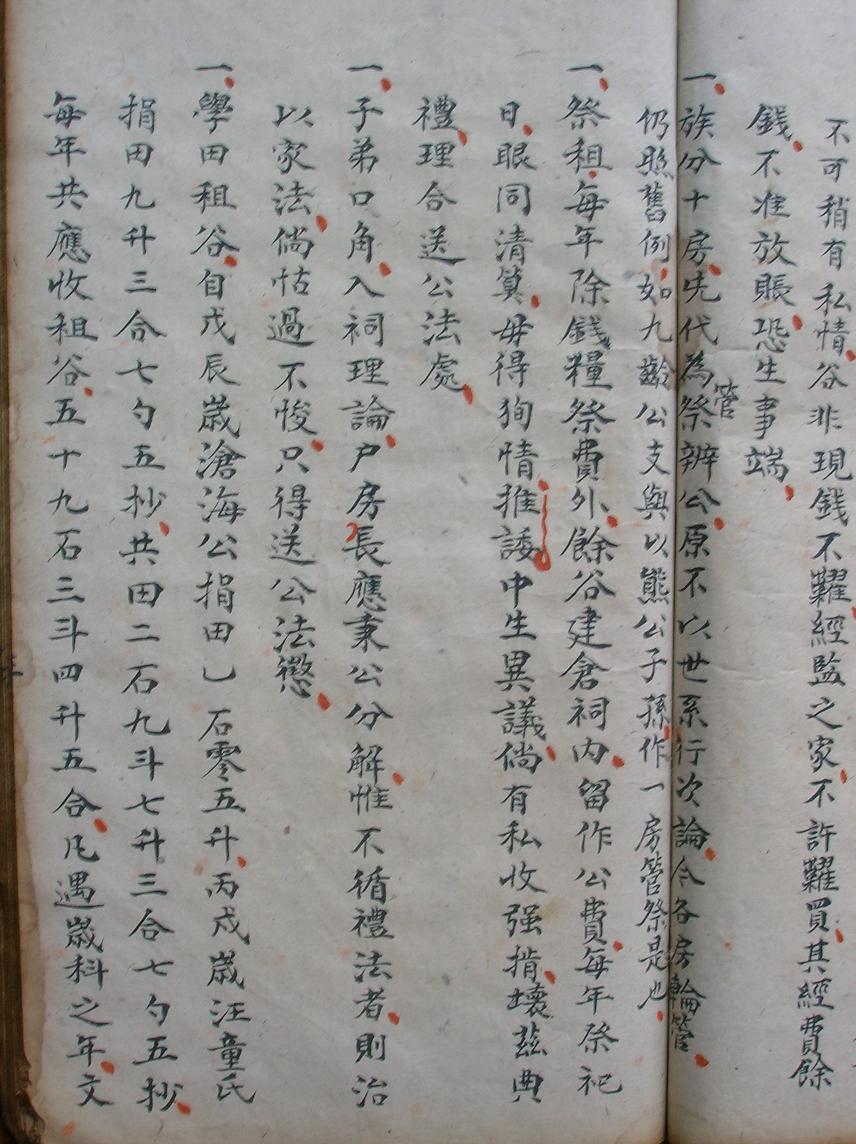 不可稍有私情谷非現錢不糶經監之家不許糶買其經費餘
錢不准放賬恐生事端
一族分十房先代為祭辦公原不以世系行次論令各房輪管
管
仍照舊例如九齡公支與以熊公子孫作一房管祭是也
一祭租每年除錢糧祭費外餘谷建倉祠內留作公費每年祭祀
日眼同清算毋得狥情推諉中生異議倘有私收强掯壞茲典
禮理合送公法處
一子弟口角入祠理論户房長應秉公分解惟不循禮法者則治
以家法倘怙過不悛只得送公法懲
一學田租谷自戊辰歲滄海公捐田乚石零五升丙戍歲汪童氏
捐田九升三合七勺五抄共田二石九斗七升三合七勺五抄
每年共應收租谷五十九石三斗四升五合凡遇歲科之年文